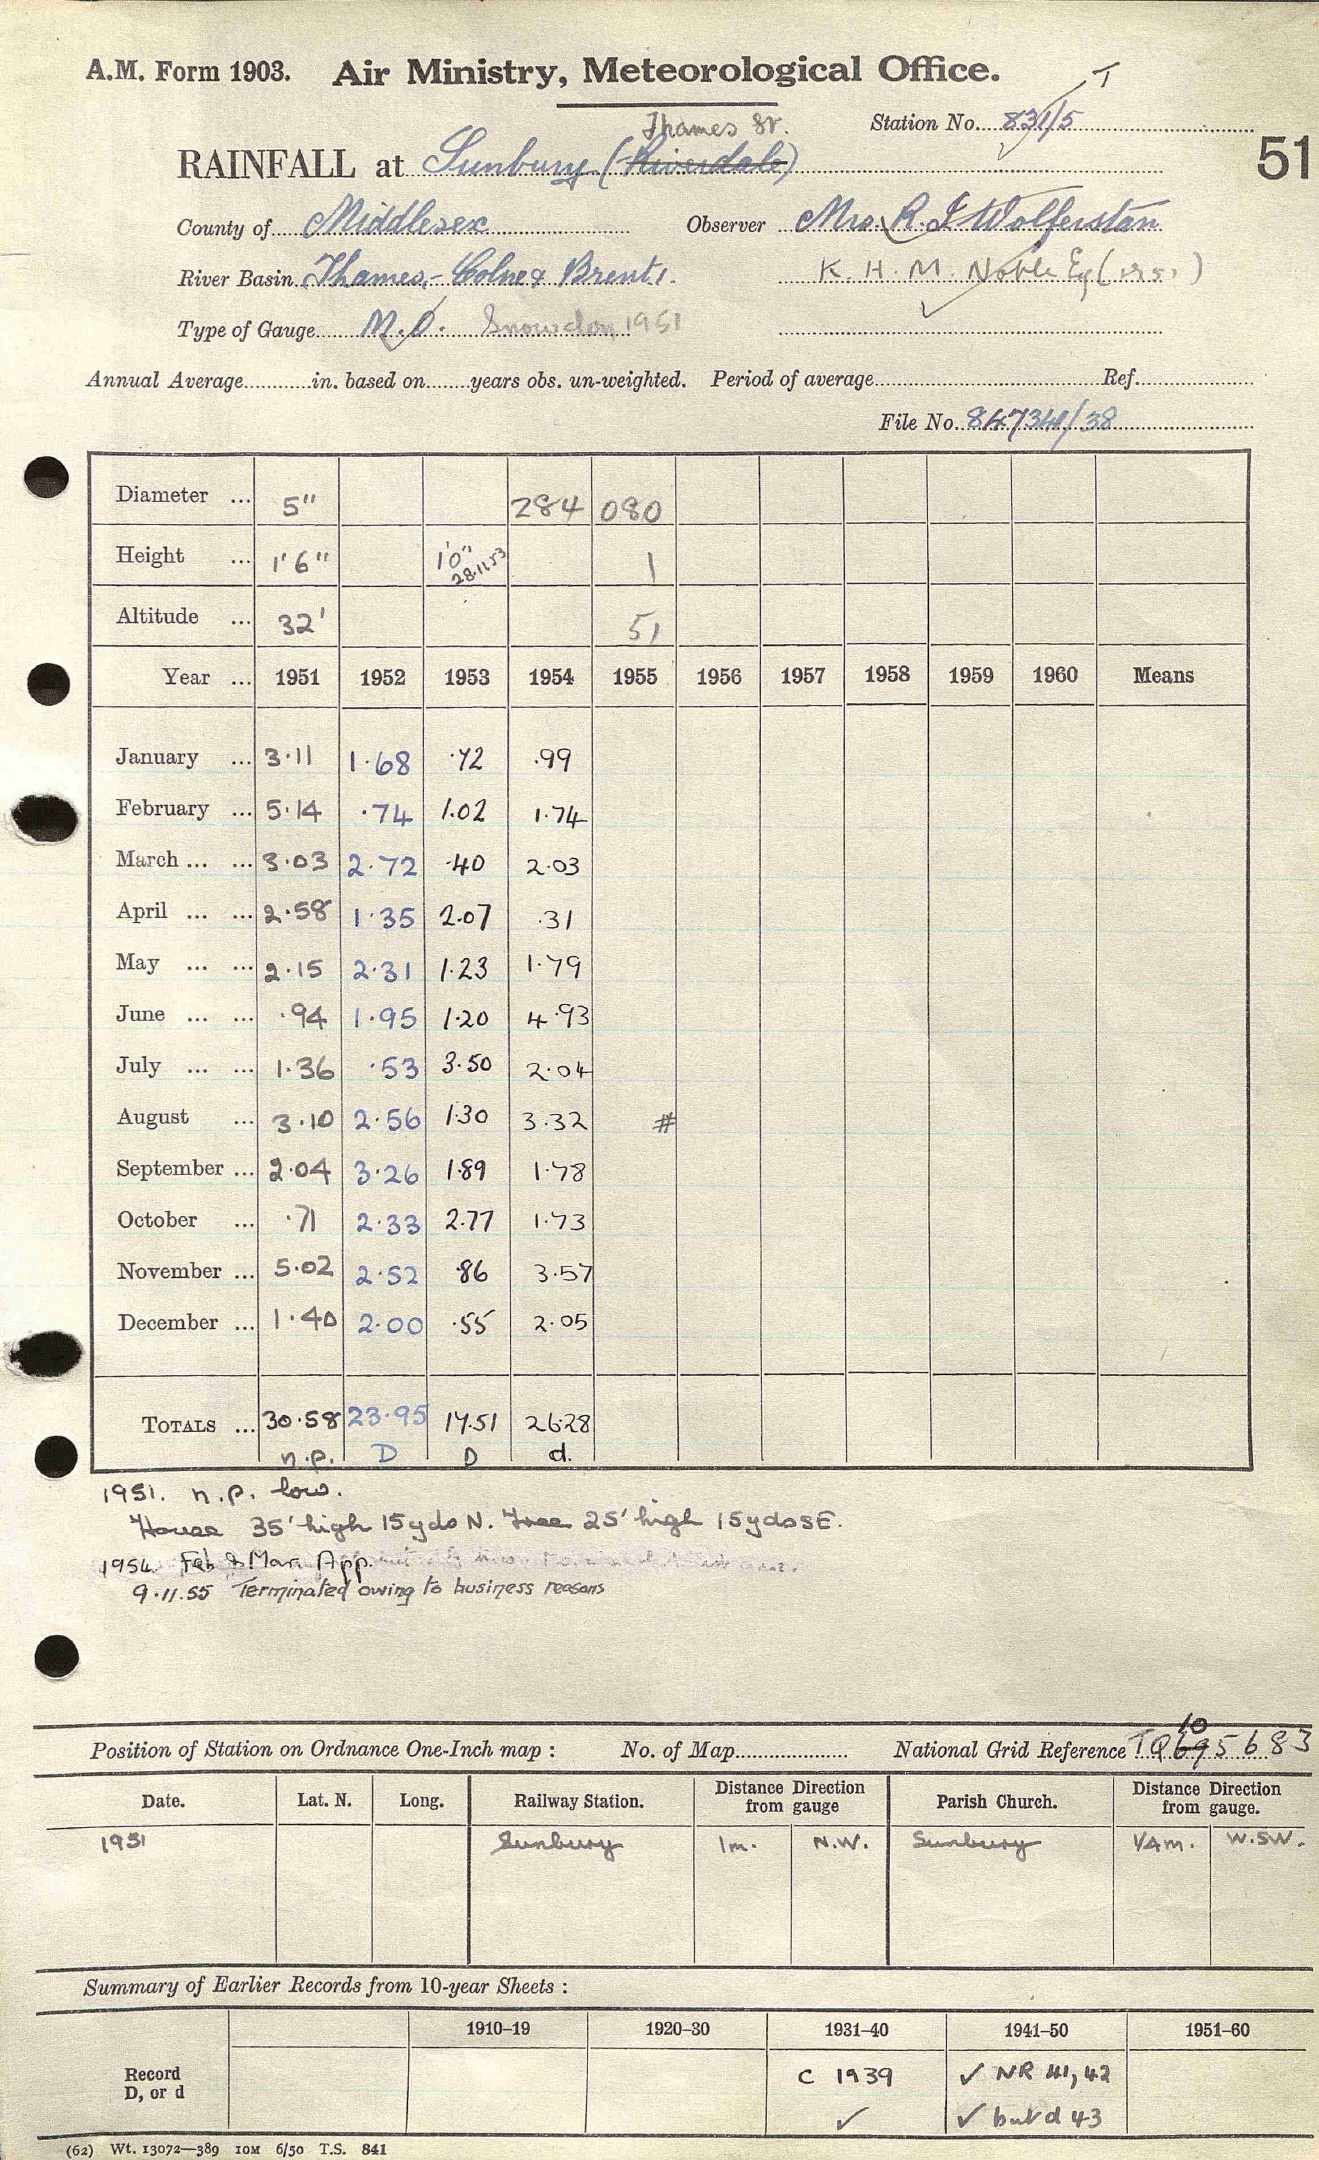 A.M. Form 1903. Air Ministry, Meteorological Office.
Station No. 831/5 T
51
Thames St.
RAINFALL at Sunbury (Riverdale)
County of Middlesex Observer Mrs. R. J Wolferstan
River Basin Thames,- Colne & Brent. K. H. M. Noble Esq (1951)
Type of Gauge M.O. Snowdon 1951
Annual Average in. based on years obs. un-weighted. Period of average Ref.
File No. 847341/38
Diameter ... 5" 284 080
Height ... 1'6" 1'0" 28.11.53 1
Altitude ... 32' 51
Year ... 1951 1952 1953 1954 1955 1956 1957 1958 1959 1960 Means
January ... 3.11 1.68 .72 .99
February ... 5.14 .74 1.02 1.74
March ... ... 3.03 2.72 .40 2.03
April ... ... 2.58 1.35 2.07 .31
May ... ... 2.15 2.31 1.23 1.79
June ... ... .94 1.95 1.20 4.93
July ... ... 1.36 .53 3.50 2.04
August ... 3.10 2.56 1.30 3.32 #
September ... 2.04 3.26 1.89 1.78
October ... .71 2.33 2.77 1.73
November ... 5.02 2.52 .86 3.57
December ... 1.40 2.00 .55 2.05
TOTALS ... 30.58 23.95 17.51 26.28
n.p. D D d.
1951. n.p. low.
House 35' high 15yds N. Tree 25' high 15yds SE.
1954 Feb & Mar. App.
9.11.55 Terminated owing to business reasons
Position of Station on Ordnance One-Inch map : No. of Map National Grid Reference TQ 69 10 5683
Date. Lat. N. Long. Railway Station. Distance Direction from gauge Parish Church. Distance Direction from gauge.
1951 Sunbury 1m. N.W. Sunbury 1/4m. W.SW.
Summary of Earlier Records from 10-year Sheets :
1910–19 1920–30 1931–40 1941–50 1951–60
Record D, or d C 1939 ✓ NR 41, 42
✓ ✓ but d 43
(62) Wt. 13072—389 10M 6/50 T.S. 841